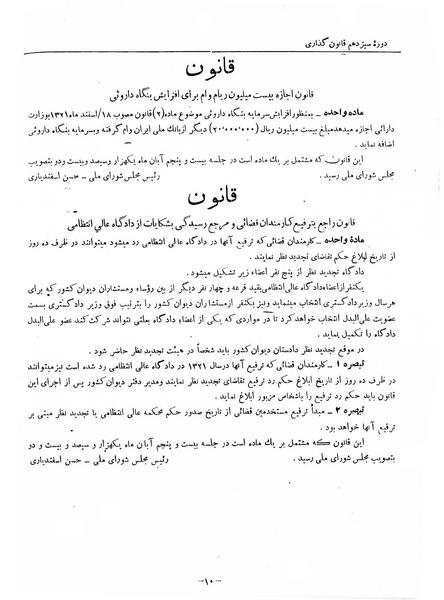 دورهٔ سیزدهم قانون گذاری
قانون
قانون اجازه بیست میلیون ریام وام برای افزایش بنگاه داروئی
ماده واحده – بمنظور افزایش سرمایه بنگاه داروئی موضوع ماده (۲) قانون مصوب ۱۸/اسفند ماه ۱۳۲۱ بوزارت
دارائی اجازه میدهد مبلغ بیست میلیون ریال (۲۰٬۰۰۰٬۰۰۰) دیگر از بانك ملی ایران وام گرفته و بسرمایه بنگاه داروئی
اضافه نماید .
این قانون که مشتمل بر یك ماده است در جلسه بیست و پنجم آبان ماه یکهزار و سیصد و بیست و دو بتصویب
مجلس شورای ملی رسید . رئیس مجلس شورای ملی – حسن اسفندیاری
قانون
قانون راجع بترفیع کارمندان قضائی و مرجع رسیدگی بشکایات از دادگاه عالی انتظامی
ماده واحده – کارمندان قضائی که ترفیع آنها در دادگاه عالی انتظامی رد میشود میتوانند در ظرف ده روز
از تاریخ ابلاغ حکم تقاضای تجدید نظر نمایند .
دادگاه تجدید نظر از پنج نفر اعضاء زیر تشکیل میشود .
یکنفر از اعضاء دادگاه عالی انتظامی بقید قرعه و چهار نفر دیگر از بین رؤساء و مستشاران دیوان کشور که برای
هر سال وزیر دادگستری انتخاب مینماید و نیز یکنفر از مستشاران دیوان کشور را بترتیب فوق وزیر دادگستری بسمت
عضویت علی‌البدل انتخاب خواهد کرد تا در مواردی که یکی از اعضاء دادگاه بعللی نتواند شرکت کند عضو علی‌البدل
دادگاه را تکمیل نماید .
در موقع تجدید نظر دادستان دیوان کشور باید شخصاً در هیئت تجدید نظر حاضر شود .
تبصره ۱ – کارمندان قضائی که ترفیع آنها در سال ۱۳۲۱ در دادگاه عالی انتظامی رد شده است نیز میتوانند
در ظرف ده روز از تاریخ ابلاغ حکم رد ترفیع تقاضای تجدید نظر نمایند و مدیر دفتر دیوان کشور پس از اجرای این
قانون باید حکم رد ترفیع را باشخاص مزبور ابلاغ نماید .
تبصره ۲ – مبدأ ترفیع مستخدمین قضائی از تاریخ صدور حکم محکمه عالی انتظامی یا تجدید نظر مبنی بر
ترفیع آنها خواهد بود .
این قانون که مشتمل بر یك ماده است در جلسه بیست و پنجم آبان ماه یکهزار و سیصد و بیست و دو
بتصویب مجلس شورای ملی رسید . رئیس مجلس شورای ملی – حسن اسفندیاری
–۱۰–